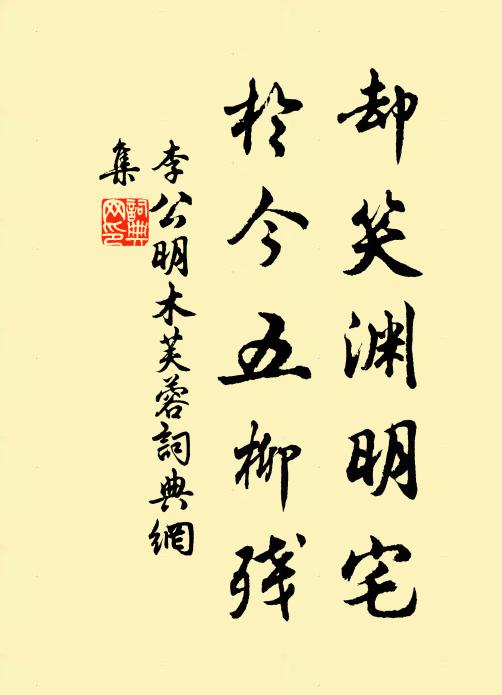 却笑渊明宅
於今五柳残
李公明木芙蓉詞典網
集
詞典
网印